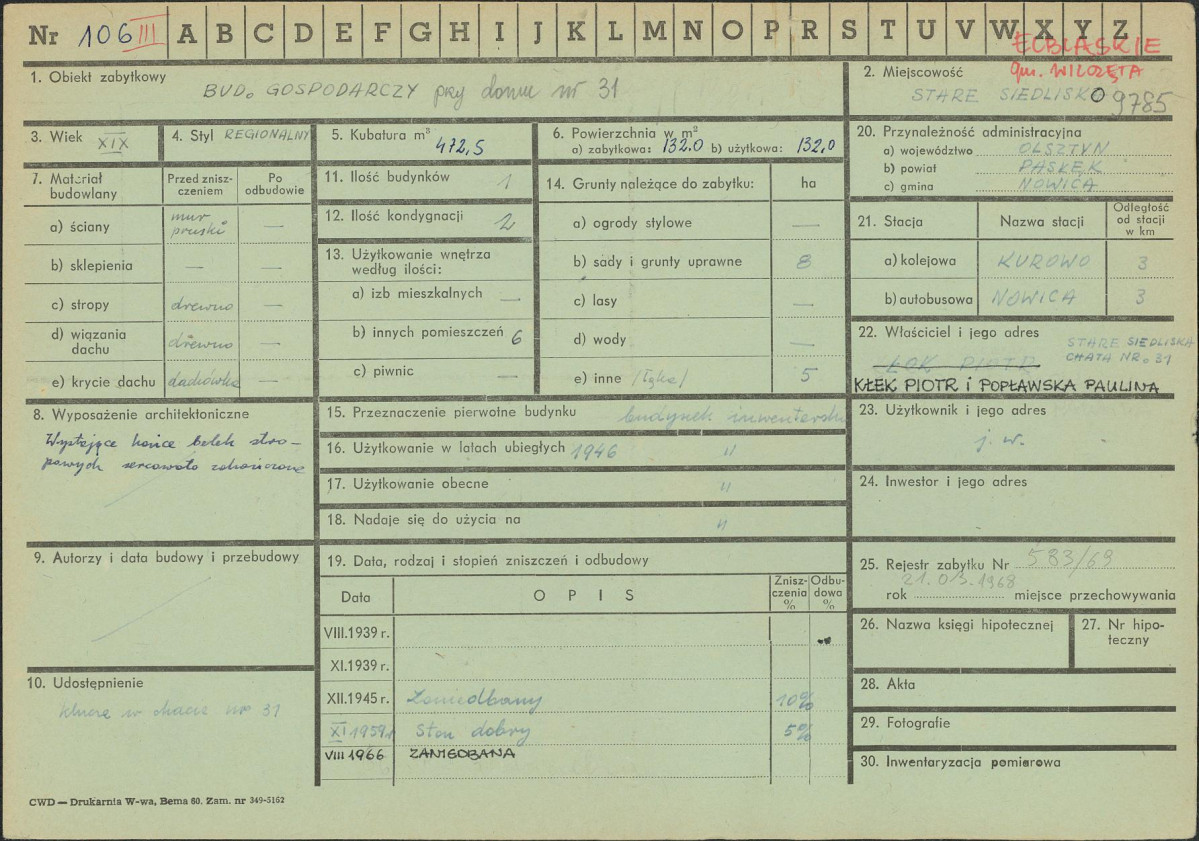 Nr 106 III A B C D E F G H I J K L M N O P R S T U V W X Y Z
ELBLĄSKIE
gm. WILCZĘTA
1. Obiekt zabytkowy
BUD. GOSPODARCZY przy domu nr 31
2. Miejscowość
STARE SIEDLISKO 9785
3. Wiek XIX
4. Styl REGIONALNY
5. Kubatura m³
472,5
6. Powierzchnia w m²
a) zabytkowa: 132.0 b) użytkowa: 132,0
20. Przynależność administracyjna
a) województwo OLSZTYN
b) powiat PASŁĘK
c) gmina NOWICA
7. Materiał budowlany
Przed zniszczeniem
Po odbudowie
a) ściany mur pruski —
b) sklepienia — —
c) stropy drewno —
d) wiązania dachu drewno —
e) krycie dachu dachówka —
11. Ilość budynków 1
12. Ilość kondygnacji 2
13. Użytkowanie wnętrza według ilości:
a) izb mieszkalnych —
b) innych pomieszczeń 6
c) piwnic —
14. Grunty należące do zabytku: ha
a) ogrody stylowe —
b) sady i grunty uprawne 8
c) lasy —
d) wody —
e) inne /łąka/ 5
21. Stacja Nazwa stacji Odległość od stacji w km
a) kolejowa KUROWO 3
b) autobusowa NOWICA 3
22. Właściciel i jego adres
STARE SIEDLISKA
CHATA NR. 31
ŁOK PIOTR
KŁEK PIOTR i POPŁAWSKA PAULINA
8. Wyposażenie architektoniczne
Wystające końce belek stro-
powych sercowato zakończone
15. Przeznaczenie pierwotne budynku budynek inwentarski
16. Użytkowanie w latach ubiegłych 1946 "
17. Użytkowanie obecne "
18. Nadaje się do użycia na "
23. Użytkownik i jego adres
j.w.
24. Inwestor i jego adres
9. Autorzy i data budowy i przebudowy
19. Data, rodzaj i stopień zniszczeń i odbudowy
Data OPIS Zniszczenia % Odbudowa %
VIII.1939 r.
XI.1939 r.
XII.1945 r. Zaniedbany 10%
XI 1959 r Stan dobry 5%
VIII 1966 ZANIEDBANA
25. Rejestr zabytku Nr 583/69
21.03.1968
rok miejsce przechowywania
26. Nazwa księgi hipotecznej
27. Nr hipoteczny
10. Udostępnienie
klucze w chacie nr 31
28. Akta
29. Fotografie
30. Inwentaryzacja pomiarowa
CWD — Drukarnia W-wa, Bema 60. Zam. nr 349-5162